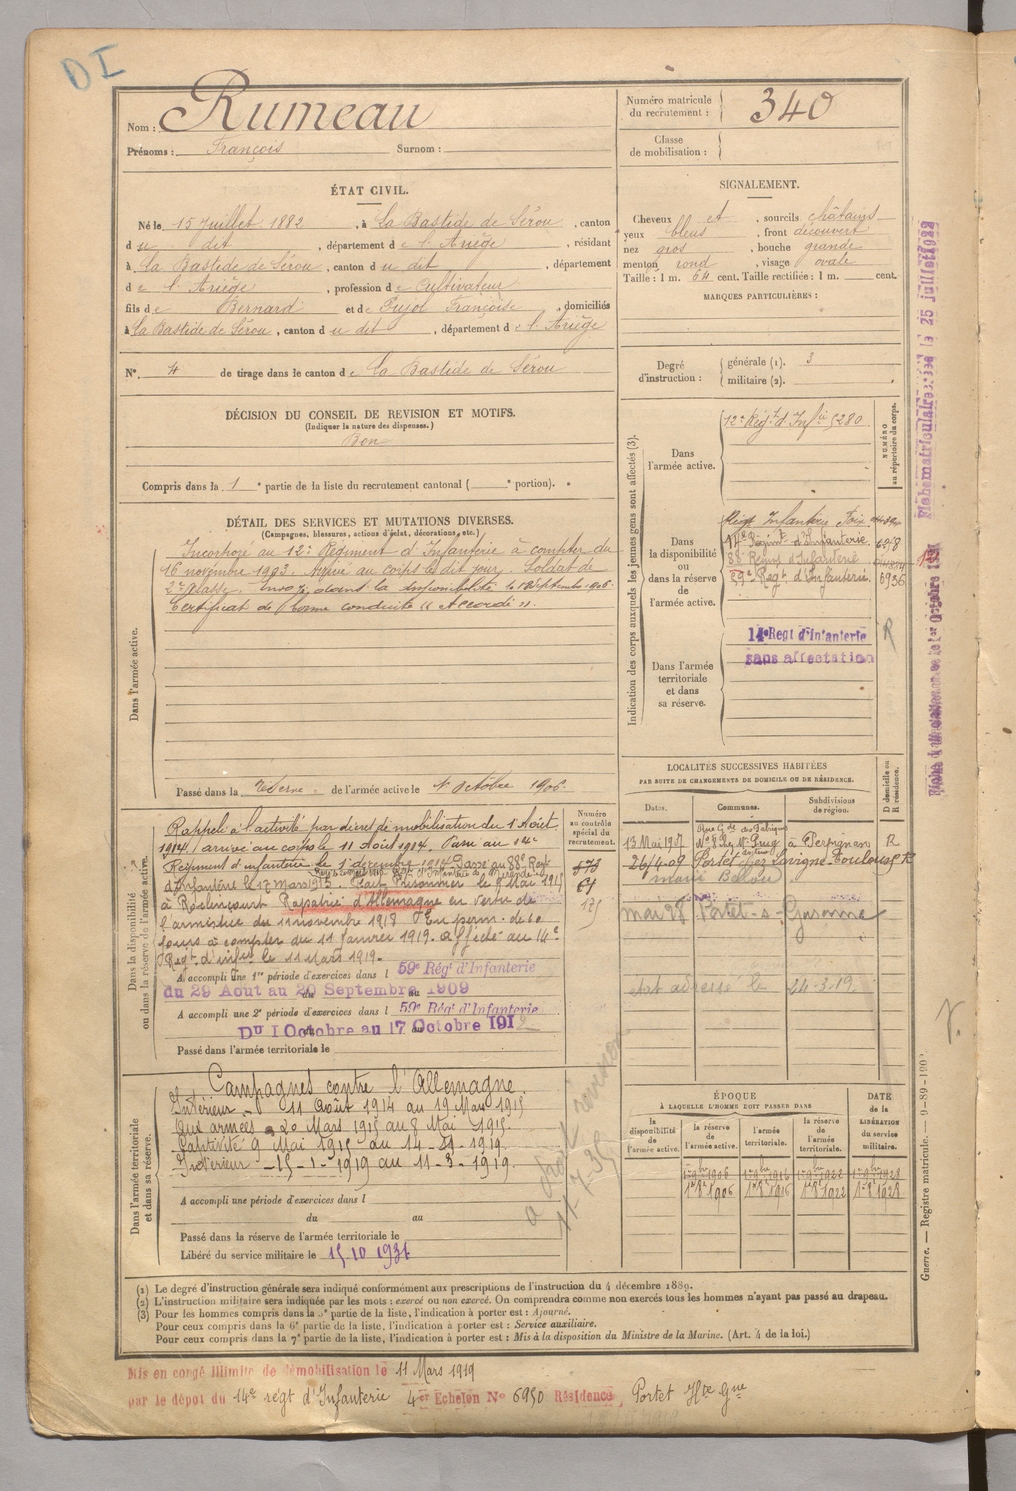 DI
Nom : Rumeau
Prénoms : François Surnom :
Numéro matricule du recrutement : 340
Classe de mobilisation :
ÉTAT CIVIL.
Né le 15 Juillet 1882, à La Bastide de Sérou, canton
du dit, département de l'Ariège, résidant
à La Bastide de Sérou, canton du dit, département
de l'Ariège, profession de Cultivateur
fils de Bernard et de Pujol Françoise, domiciliés
à La Bastide de Sérou, canton du dit, département de l'Ariège
N° 4 de tirage dans le canton de La Bastide de Sérou
DÉCISION DU CONSEIL DE REVISION ET MOTIFS.
(Indiquer la nature des dispenses.)
Bon
Compris dans la 1e partie de la liste du recrutement cantonal ( e portion).
SIGNALEMENT.
Cheveux et, sourcils châtains
yeux bleus, front découvert
nez gros, bouche grande
menton rond, visage ovale
Taille : 1 m. 64 cent. Taille rectifiée : 1 m. cent.
MARQUES PARTICULIÈRES :
Degré d'instruction : générale (1). 3
militaire (2).
DÉTAIL DES SERVICES ET MUTATIONS DIVERSES.
(Campagnes, blessures, actions d'éclat, décorations, etc.)
Dans l'armée active.
Incorporé au 12e Régiment d'Infanterie à compter du
16 novembre 1903. Arrivé au corps le dit jour. Soldat de
2e classe. dans la disponibilité le 18 Septembre 1906.
Certificat de bonne conduite "Accordé".
Passé dans la réserve de l'armée active le 1er Octobre 1906.
Indication des corps auxquels les jeunes gens sont affectés (3).
NUMÉRO au répertoire du corps.
Dans l'armée active.
12e Régt d'Infie 5280
Dans la disponibilité ou dans la réserve de l'armée active.
Régt Infanterie Foix
14e Régimt d'Infanterie
88e Régimt d'Infanterie
59e Régt d'Infanterie 6936
Dans l'armée territoriale et dans sa réserve.
14e Regt d'Infanterie
sans affectation
R
Dans la disponibilité ou dans la réserve de l'armée active.
Numéro au contrôle spécial du recrutement.
Rappelé à l'activité par décret de mobilisation du 1 Août
1914, arrivé au corps le 11 Août 1914. Passé au 14e
Régiment d'infanterie le 1 décembre 1914. Passé au 88e Régt
d'Infanterie le 17 Mars 1915. Fait Prisonnier le 9 Mai 1915
à Roclincourt. Rapatrié d'Allemagne en vertu de
l'armistice du 11 novembre 1918. En perm. de 60
jours à compter du 11 Janvier 1919. Affecté au 14e
Régt d'infie le 11 Mars 1919.
573
64
125
A accompli une 1re période d'exercices dans l 59e Régt d'Infanterie
du 29 Aout au 20 Septembre 1909
A accompli une 2e période d'exercices dans l 59e Régt d'Infanterie
Du 1 Octobre au 17 Octobre 1912
Passé dans l'armée territoriale le
LOCALITÉS SUCCESSIVES HABITÉES
PAR SUITE DE CHANGEMENTS DE DOMICILE OU DE RÉSIDENCE.
Dates. Communes. Subdivisions de région. D domicile ou R résidence.
13 Mai 1907 à Perpignan R
26/4-09 Portet chez Lavigne Toulouse R
mai 27 Portet-s-Garonne
état adresse le 24-3-19
Dans l'armée territoriale et dans sa réserve.
Campagnes contre l'Allemagne.
Intérieur - 11 Août 1914 au 19 Mars 1915
Aux armées - 20 Mars 1915 au 8 Mai 1915.
Captivité 9 Mai 1915 au 14-1-1919.
Intérieur - 15-1-1919 au 11-3-1919.
A accompli une période d'exercices dans l
du au
Passé dans la réserve de l'armée territoriale le
Libéré du service militaire le 15-10 1931
ÉPOQUE
À LAQUELLE L'HOMME DOIT PASSER DANS
la disponibilité de l'armée active. la réserve de l'armée active. l'armée territoriale. la réserve de l'armée territoriale. DATE de la LIBÉRATION du service militaire.
1er 9bre 1906 1er 9bre 1916 1er 9bre 1922 1er 9bre 1928
1er 8bre 1906 1er 8bre 1916 1er 8bre 1922 1er 8bre 1928
(1) Le degré d'instruction générale sera indiqué conformément aux prescriptions de l'instruction du 4 décembre 1889.
(2) L'instruction militaire sera indiquée par les mots : exercé ou non exercé. On comprendra comme non exercés tous les hommes n'ayant pas passé au drapeau.
(3) Pour les hommes compris dans la 5e partie de la liste, l'indication à porter est : Ajourné.
Pour ceux compris dans la 6e partie de la liste, l'indication à porter est : Service auxiliaire.
Pour ceux compris dans la 7e partie de la liste, l'indication à porter est : Mis à la disposition du Ministre de la Marine. (Art. 4 de la loi.)
Mis en congé illimité de démobilisation le 11 Mars 1919
par le dépot du 14e régt d'Infanterie 4er Echelon N° 6950 Résidence Portet Hte Gne
Guerre. — Registre matricule. — 9-89-190